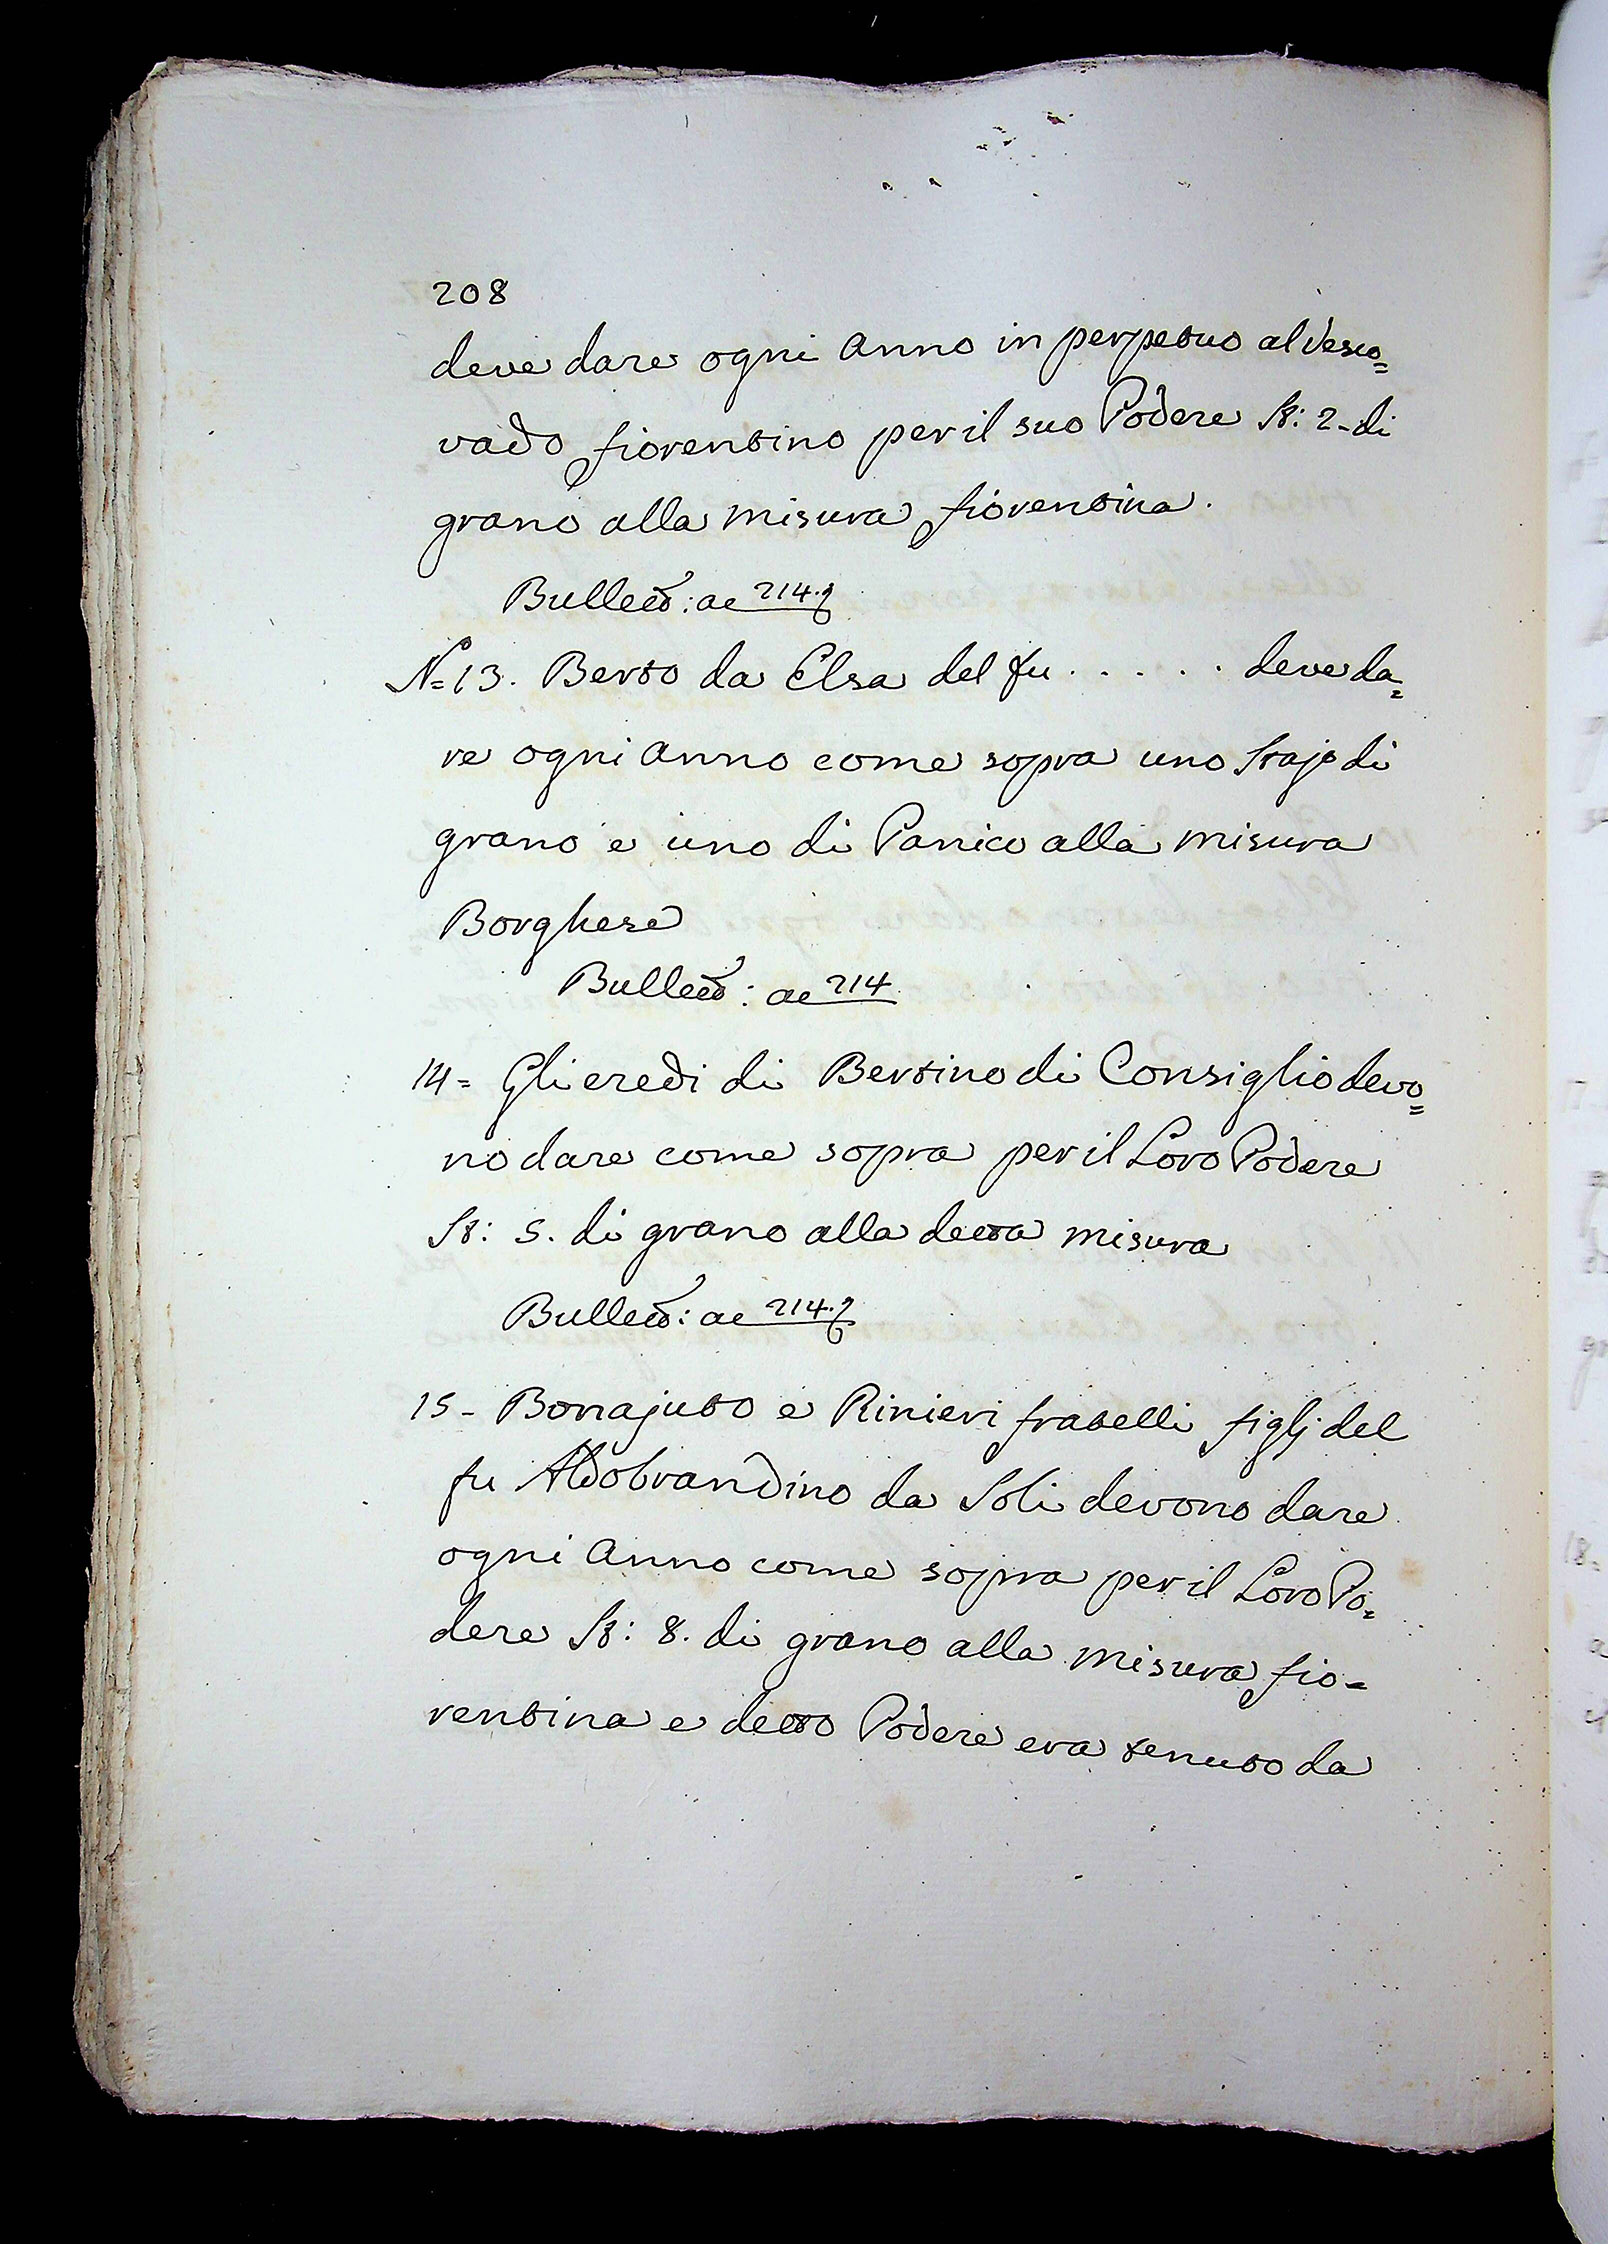 208
deve dare ogni Anno in perpetuo al Vesco=
vado fiorentino per il suo Podere St: 2- di
grano alla misura fiorentina.
Bullett: ac 214.
N=13. Berto da Elsa del fu . . . . . deve da=
re ogni Anno come sopra uno Stajo di
grano e uno di Panico alla misura
Borghese
Bullett: ac 214
14= Gli eredi di Bertino di Consiglio devo=
no dare come sopra per il Loro Podere
St: 5. di grano alla detta misura
Bullett: ac 214.
15- Bonajuto e Rinieri fratelli figlj del
fu Aldobrandino da Soli devono dare
ogni Anno come sopra per il Loro Po=
dere St: 8. di grano alla misura fio=
rentina e detto Podere era tenuto da